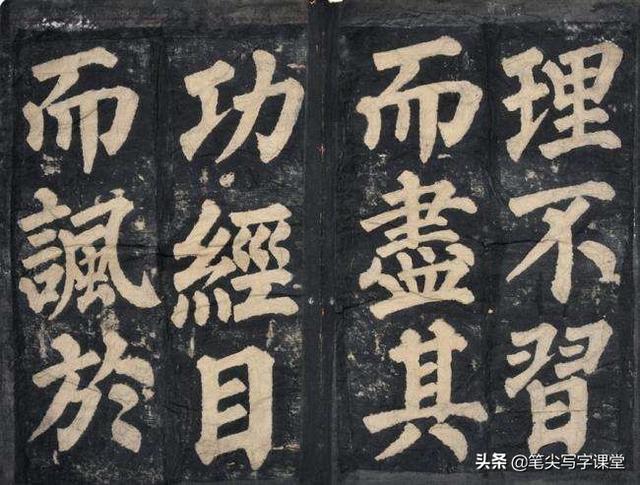 理不習
而盡其
功經目
而諷於
头条 @笔尖写字课堂